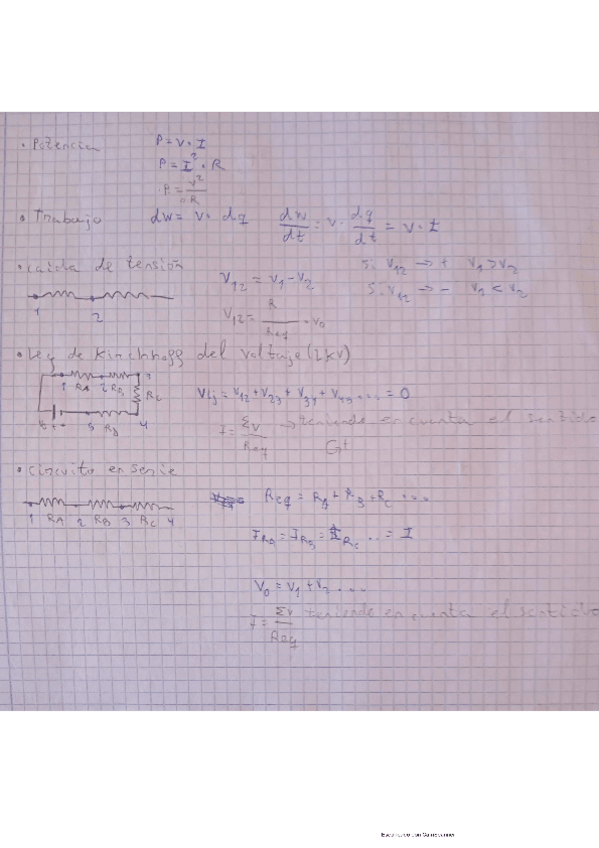 • Potencia P = V · I
P = I² · R
· P = V²/R
• Trabajo dW = V · dq dW/dt = V · dq/dt = V · I
• Caida de tensión V12 = V1 - V2 Si V12 → + V1 > V2
Si V12 → - V1 < V2
1 2 V12 = R/Req · V0
• Ley de Kirchhoff del voltaje (LKV)
1 RA 2 RB 3 RC 4 RD 5 6 + -
Vij = V12 + V23 + V34 + V45 .... = 0
I = ΣV/Req → teniendo en cuenta el sentido
• Circuito en serie
1 RA 2 RB 3 RC 4 Req = RA + RB + RC ...
IRA = IRB = IRC .. = I
V0 = V1 + V2 ....
I = ΣV/Req teniendo en cuenta el sentido
Escaneado con CamScanner